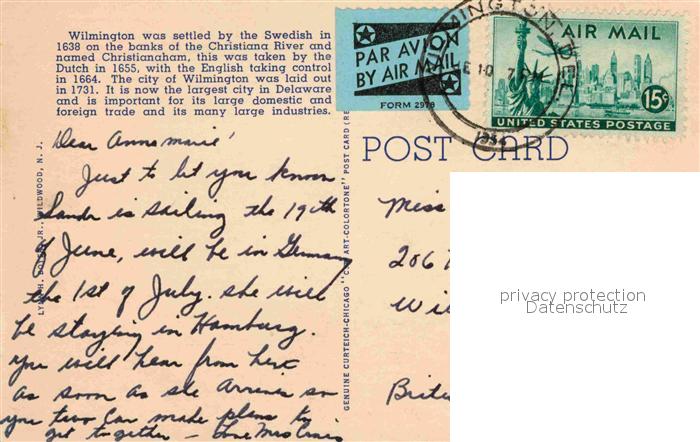 Wilmington was settled by the Swedish in
1638 on the banks of the Christiana River and
named Christianaham, this was taken by the
Dutch in 1655, with the English taking control
in 1664. The city of Wilmington was laid out
in 1731. It is now the largest city in Delaware
and is important for its large domestic and
foreign trade and its many large industries.
PAR AVION
BY AIR MAIL
FORM 2978
WILMINGTON, DEL.
1954
AIR MAIL
15¢
UNITED STATES POSTAGE
POST CARD
Dear Annemarie'
Just to let you know
Sandr is sailing the 19th
of June, will be in Germany
the 1st of July. she will
be staying in Hamburg.
you will hear from her
as soon as she arrives so
you two can make plans to
get together – Love Mrs
WILDWOOD, N. J.
GENUINE CURTEICH-CHICAGO "C. T. ART-COLORTONE" POST CARD (RE
Miss
206
Wil
Brit
privacy protection
Datenschutz